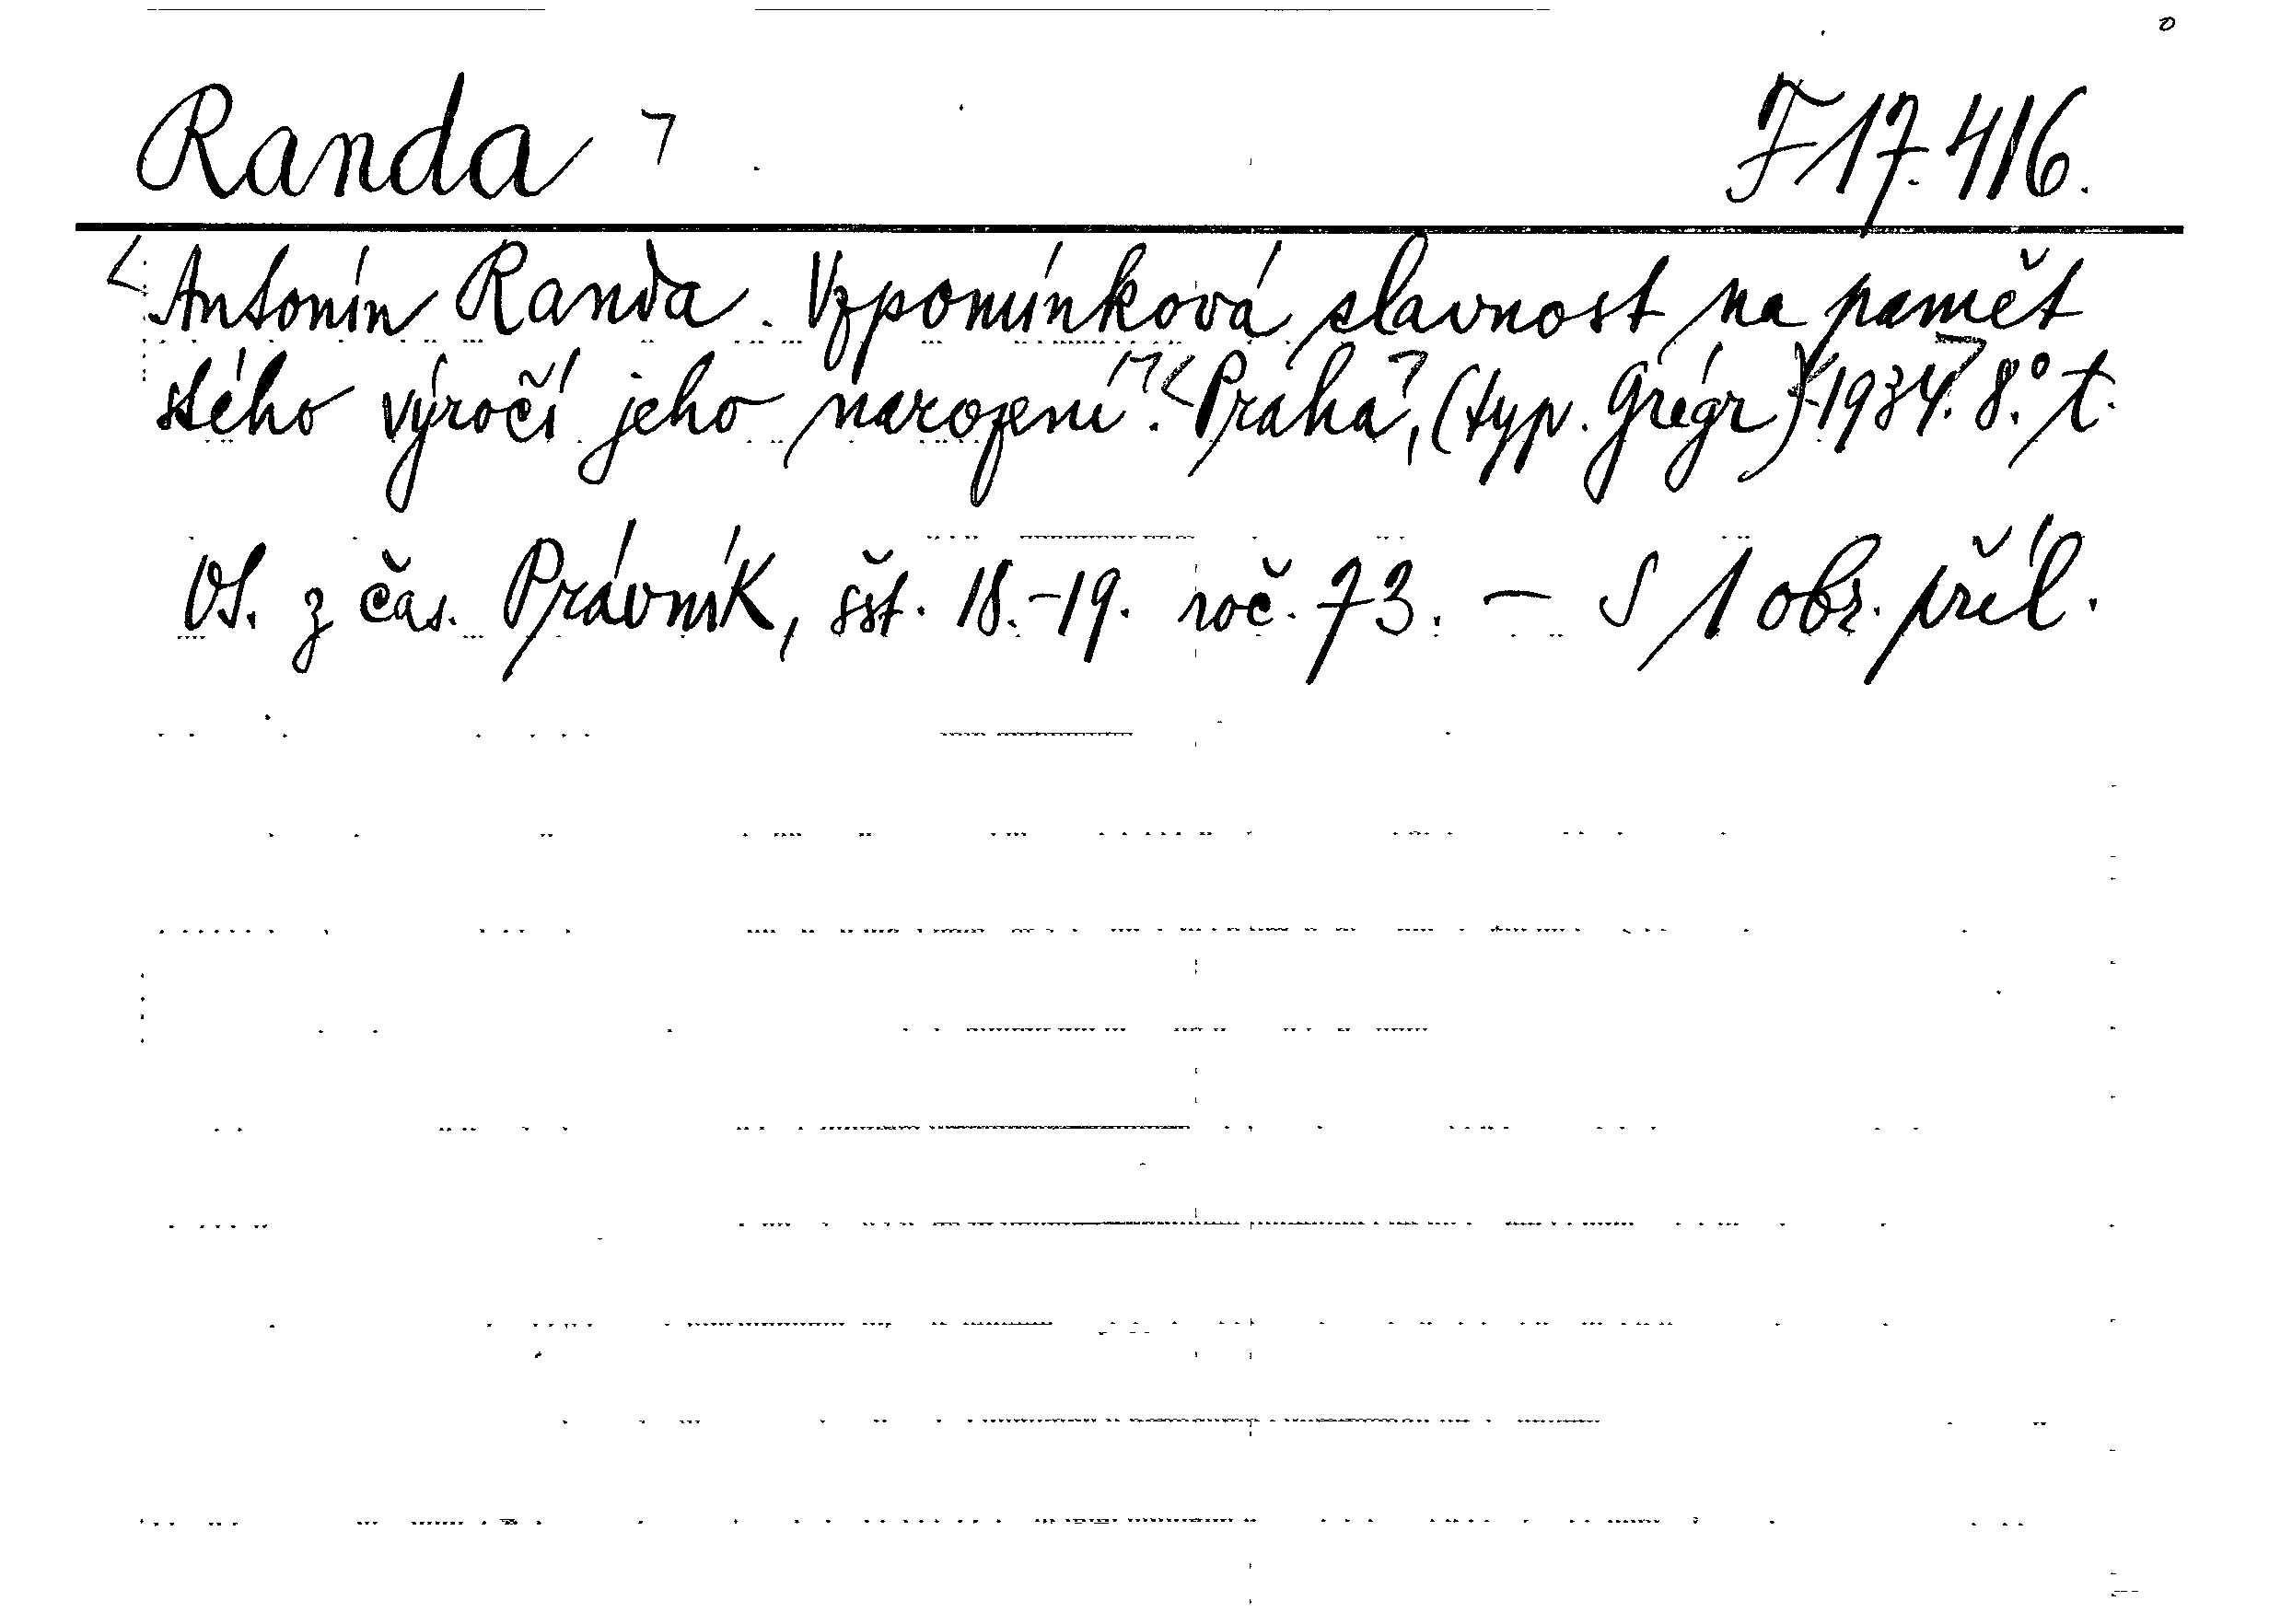 Randa F 17.416.
Antonín Randa. Vzpomínková slavnost na pamět
stého výročí jeho narození. Praha, (typ. Grégr) 1934. 8.° t.
Ot. z čas. Právník, sšt. 18.-19. roč. 73. — S 1 obr. příl.